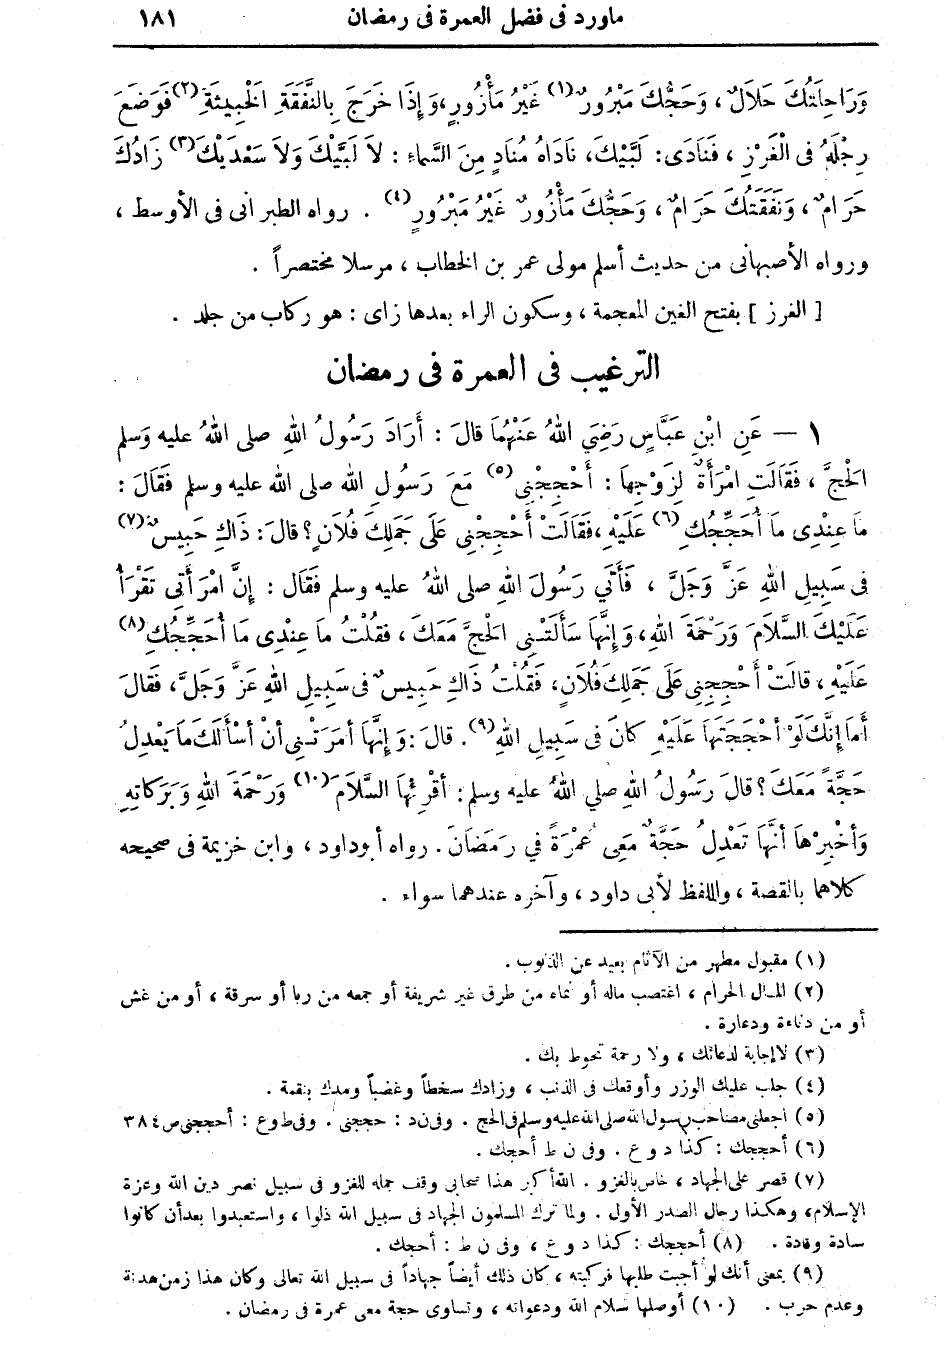 ماورد فى فضل العمرة فى رمضان ١٨١
وَرَاحِلَتُكَ حَلَالٌ ، وَحَجُّكَ مَبْرُورٌ(١) غَيْرُ مَأْزُورٍ، وَإِذَا خَرَجَ بِالنَّفَقَةِ الْخَبِيثَةِ(٢) فَوَضَعَ
رِجْلَهُ فى الْغَرْزِ ، فَنَادَى: لَبَّيْكَ، نَادَاهُ مُنَادٍ مِنَ السَّمَاءِ : لاَ لَبَّيْكَ وَلاَ سَعْدَيْكَ(٣) زَادُكَ
حَرَامٌ ، وَنَفَقَتُكَ حَرَامٌ ، وَحَجُّكَ مَأْزُورٌ غَيْرُ مَبْرُورٍ(٤) . رواه الطبرانى فى الأوسط ،
ورواه الأصبهانى من حديث أسلم مولى عمر بن الخطاب ، مرسلا مختصراً .
[ الغرز ] بفتح الغين المعجمة ، وسكون الراء بعدها زاى : هو ركاب من جلد .
الترغيب فى العمرة فى رمضان
١ — عَنِ ابْنِ عَبَّاسٍ رَضِيَ اللهُ عَنْهُمَا قالَ : أَرَادَ رَسُولُ اللهِ صلى اللهُ عليه وَسلم
الْحَجَّ ، فَقَالَتِ امْرَأَةٌ لِزَوْجِهَا : أَحْجِجْنِى(٥) مَعَ رَسُولِ الله صلى الله عليه وسلم فَقَالَ :
مَا عِنْدِى مَا أُحَجِّجُكِ(٦) عَلَيْهِ ، فَقَالَتْ أَحْجِجْنِى عَلَى جَمَلِكَ فُلَانٍ ؟ قالَ : ذَاكَ حَبِيسٌ(٧)
فى سَبِيلِ اللهِ عَزَّ وَجَلَّ ، فَأَتَي رَسُولَ اللهِ صلى اللهُ عليه وسلم فَقَال : إِنَّ امْرَأَتِى تَقْرَأُ
عَلَيْكَ السَّلَامَ وَرَحْمَةَ اللهِ، وَإِنَّهَا سَأَلَتْنِى الْحَجَّ مَعَكَ ، فَقُلْتُ مَا عِنْدِى مَا أُحَجِّجُكِ(٨)
عَلَيْهِ ، قالَتْ أَحْجِجْنِى عَلَى جَمَلِكَ فُلَانٍ، فَقُلْتُ ذَاكَ حَبِيسٌ فى سَبِيلِ اللهِ عَزَّ وَجَلَّ، فَقالَ
أَمَا إِنَّكَ لَوْ أَحْجَجْتَهَا عَلَيْهِ كَانَ فى سَبِيلِ اللهِ(٩). قالَ : وَإِنَّهَا أَمَرَتْنِى أَنْ أَسْأَلَكَ مَا يَعْدِلُ
حَجَّةً مَعَكَ ؟ قالَ رَسُولُ اللهِ صلي اللهُ عليه وسلم : أَقْرِئْهَا السَّلَامَ(١٠) وَرَحْمَةَ اللهِ وَبَرَكَاتِهِ
وَأَخْبِرْهَا أَنَّهَا تَعْدِلُ حَجَّةً مَعِى عُمْرَةٌ في رَمَضَانَ . رواه أبو داود ، وابن خزيمة فى صحيحه
كلاهما بالقصة ، واللفظ لأبى داود ، وآخره عندهما سواء .
(١) مقبول مطهر من الآثام بعيد عن الذنوب .
(٢) المال الحرام ، اغتصب ماله أو نماء من طرق غير شريفة أو جمعه من ربا أو سرقة ، أو من غش
أو من دناءة ودعارة .
(٣) لا إجابة لدعائك ، ولا رحمة تحوط بك .
(٤) جلب عليك الوزر وأوقعك فى الذنب ، وزادك سخطاً وغضباً ومدك بنقمة .
(٥) اجعلنى مصاحب رسول الله صلى الله عليه وسلم فى الحج . وفى ن د : حججنى . وفى ط و ع : أحججنى ص ٣٨٤
(٦) أحججك : كذا د و ع . وفى ن ط أحجك .
(٧) قصر على الجهاد ، خاص بالغزو . الله أكبر هذا صحابى وقف جمله للغزو فى سبيل نصر دين الله وعزة
الإسلام، وهكذا رجال الصدر الأول . ولما ترك المسلمون الجهاد فى سبيل الله ذلوا ، واستعبدوا بعد أن كانوا
سادة وقادة . (٨) أحججك : كذا د و ع ، وفى ن ط : أحجك .
(٩) بمعنى أنك لو أجبت طلبها فركبته ، كان ذلك أيضاً جهاداً فى سبيل الله تعالى وكان هذا زمن هدنة
وعدم حرب . (١٠) أوصلها سلام الله ودعواته ، وتساوى حجة معى عمرة فى رمضان .